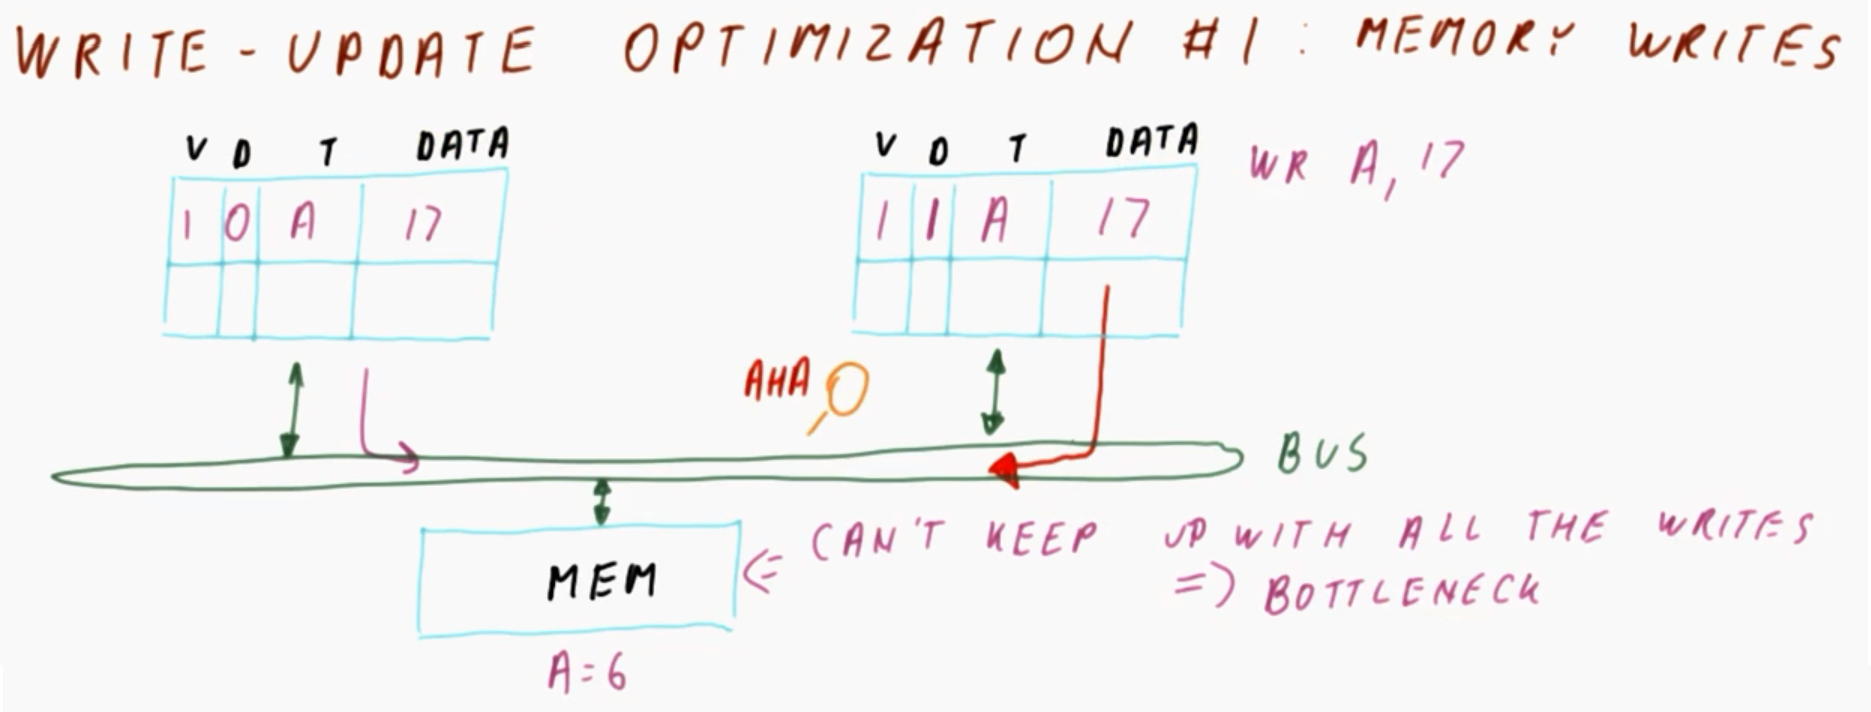 WRITE-UPDATE OPTIMIZATION #1: MEMORY WRITES
V D T DATA
1 0 A 17
V D T DATA
1 1 A 17
WR A, 17
AHA
BUS
MEM
A=6
<= CAN'T KEEP UP WITH ALL THE WRITES
=> BOTTLENECK